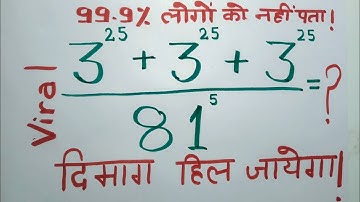 99.9% लोगों को नहीं पता!
Viral
3²⁵ + 3²⁵ + 3²⁵
81⁵
= ?
दिमाग हिल जायेगा!